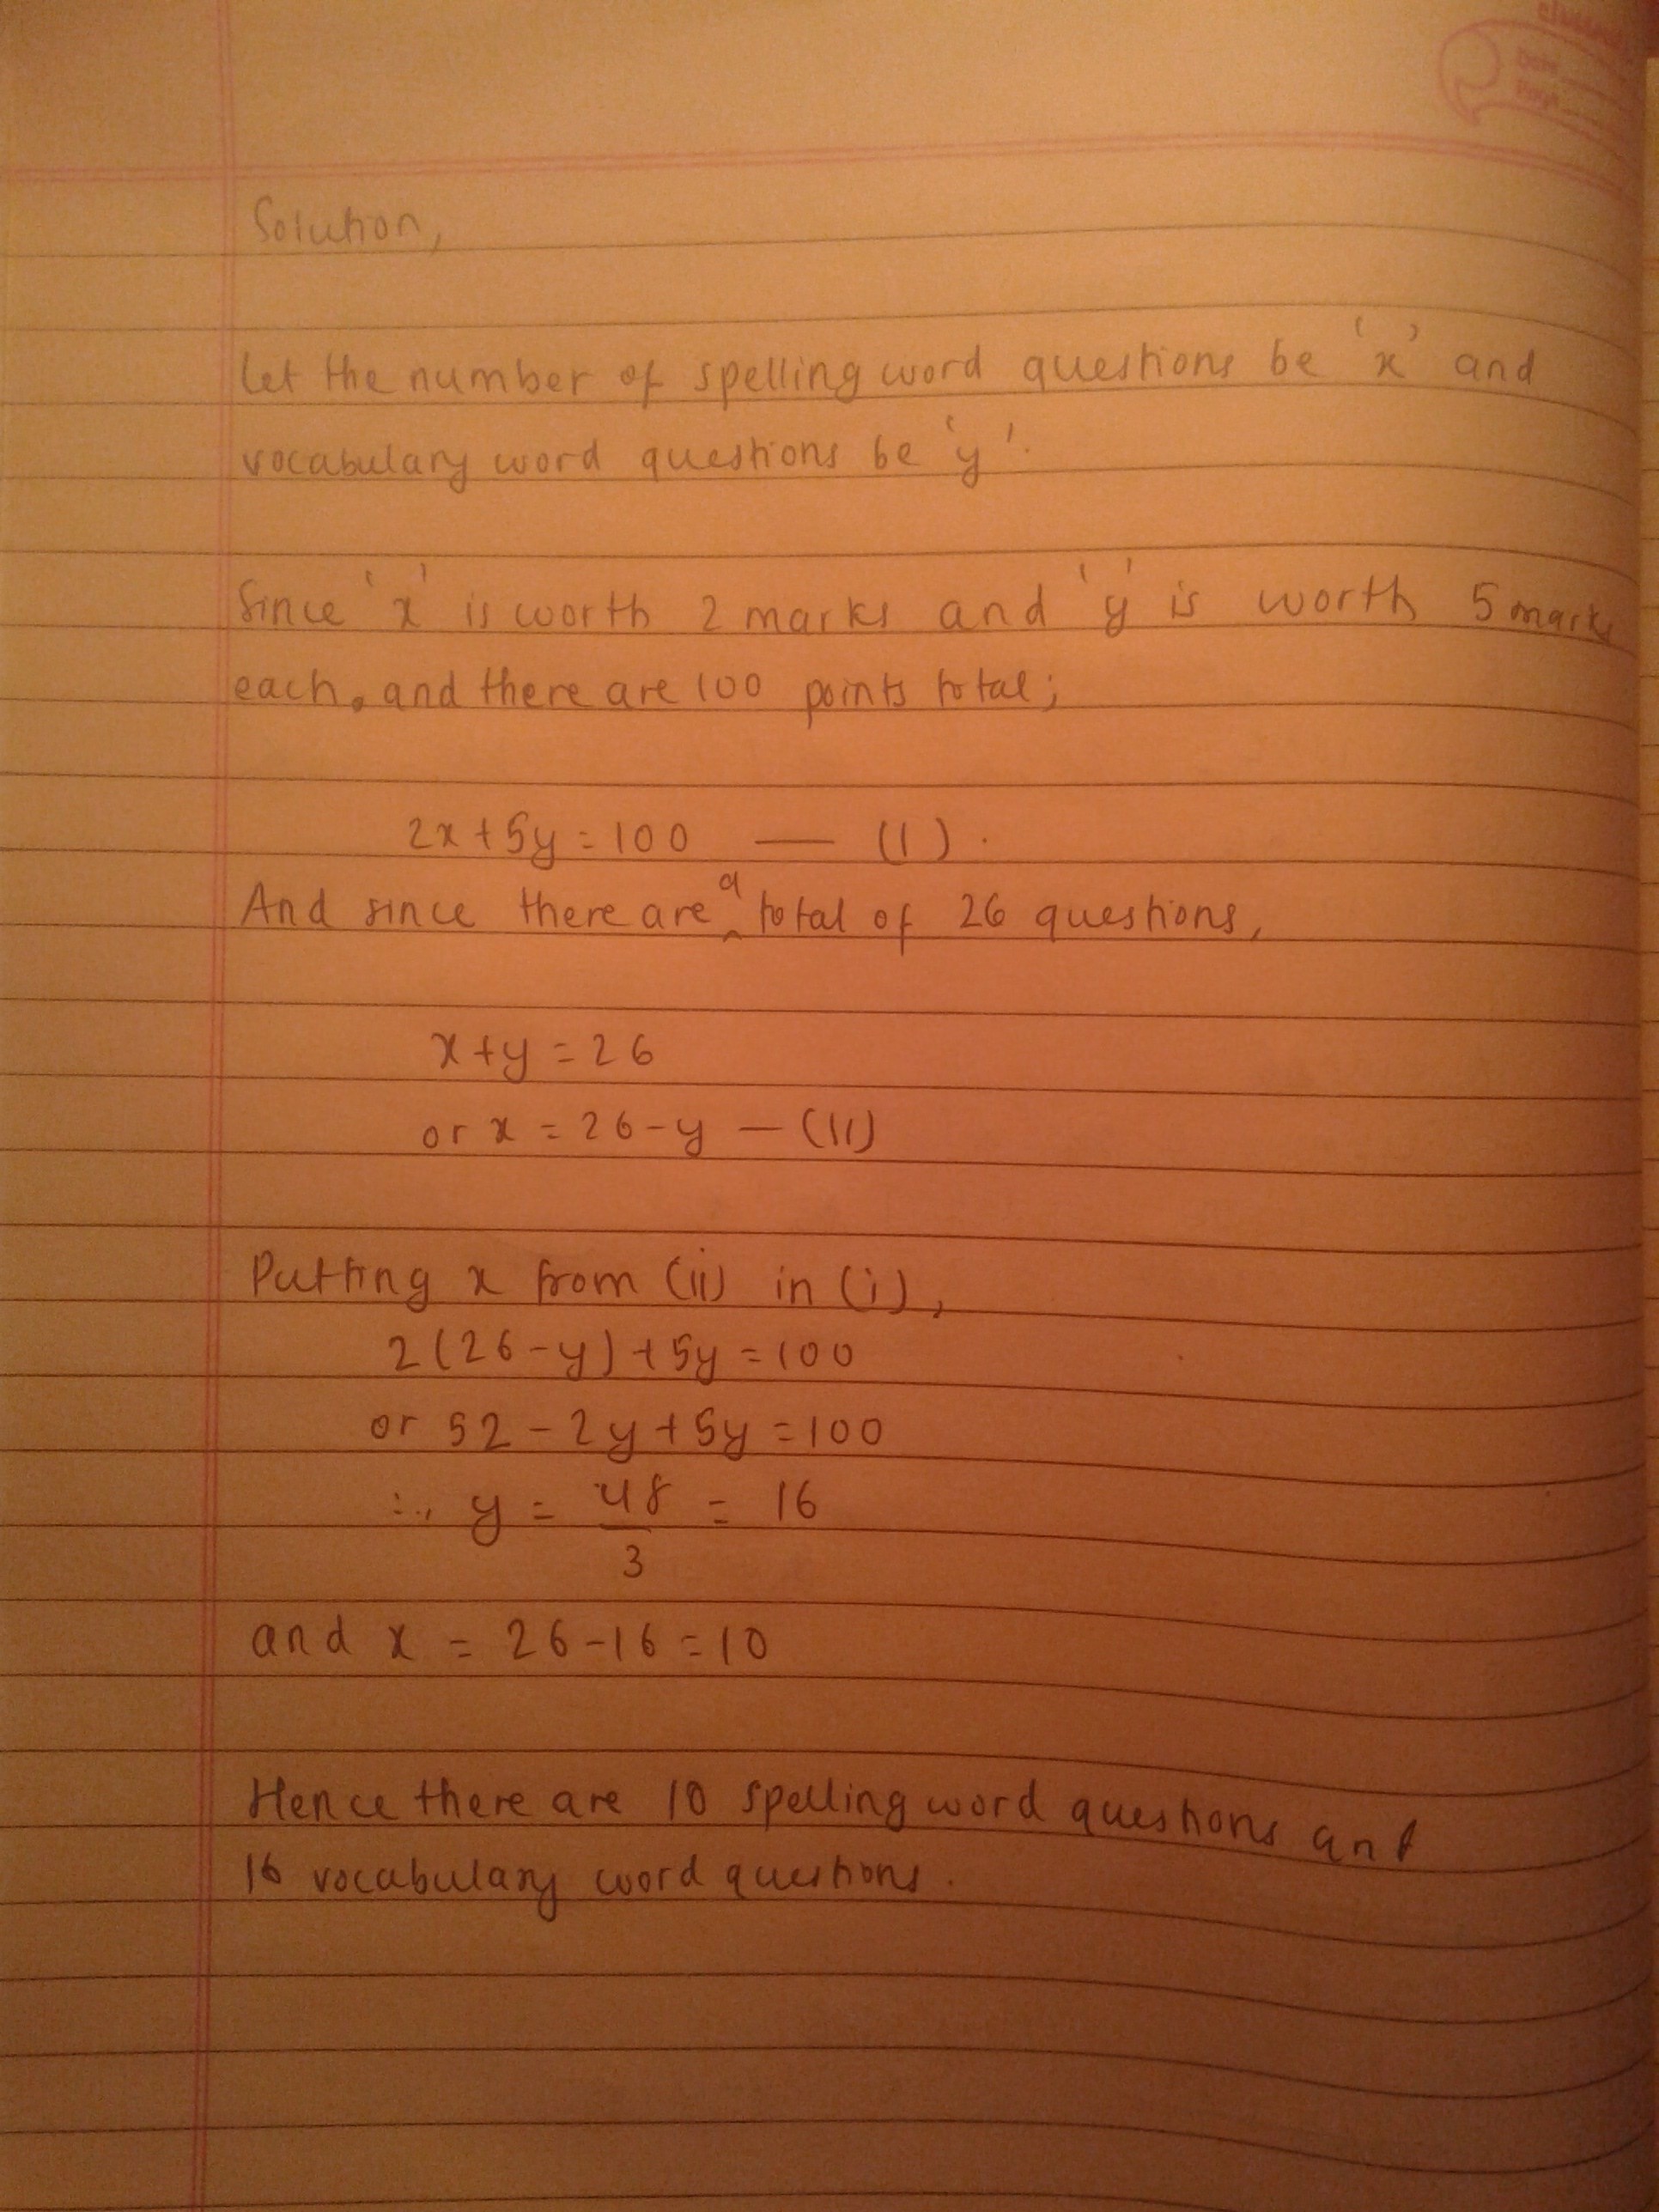 classmate
Date
Page
Solution,
Let the number of spelling word questions be 'x' and
vocabulary word questions be 'y'.
Since 'x' is worth 2 marks and 'y' is worth 5 marks
each, and there are 100 points total;
2x+5y=100 — (I).
And since there are ^a total of 26 questions,
x+y=26
or x = 26-y — (II)
Putting x from (ii) in (i),
2(26-y)+5y=100
or 52-2y+5y=100
∴ y = 48/3 = 16
and x = 26-16=10
Hence there are 10 spelling word questions and
16 vocabulary word questions.